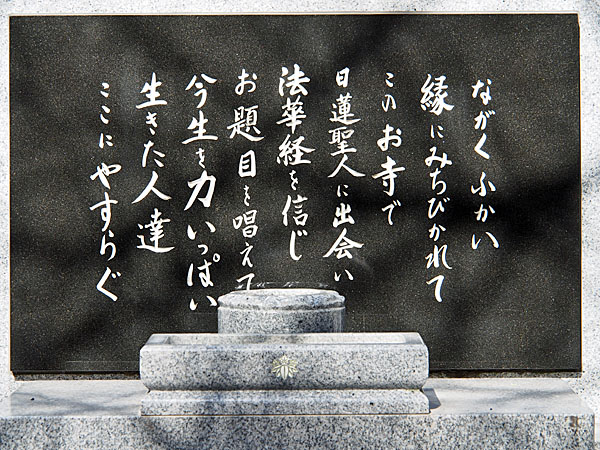 ながくふかい
縁にみちびかれて
このお寺で
日蓮聖人に出会い
法華経を信じ
お題目を唱えて
今生を力いっぱい
生きた人達
ここにやすらぐ